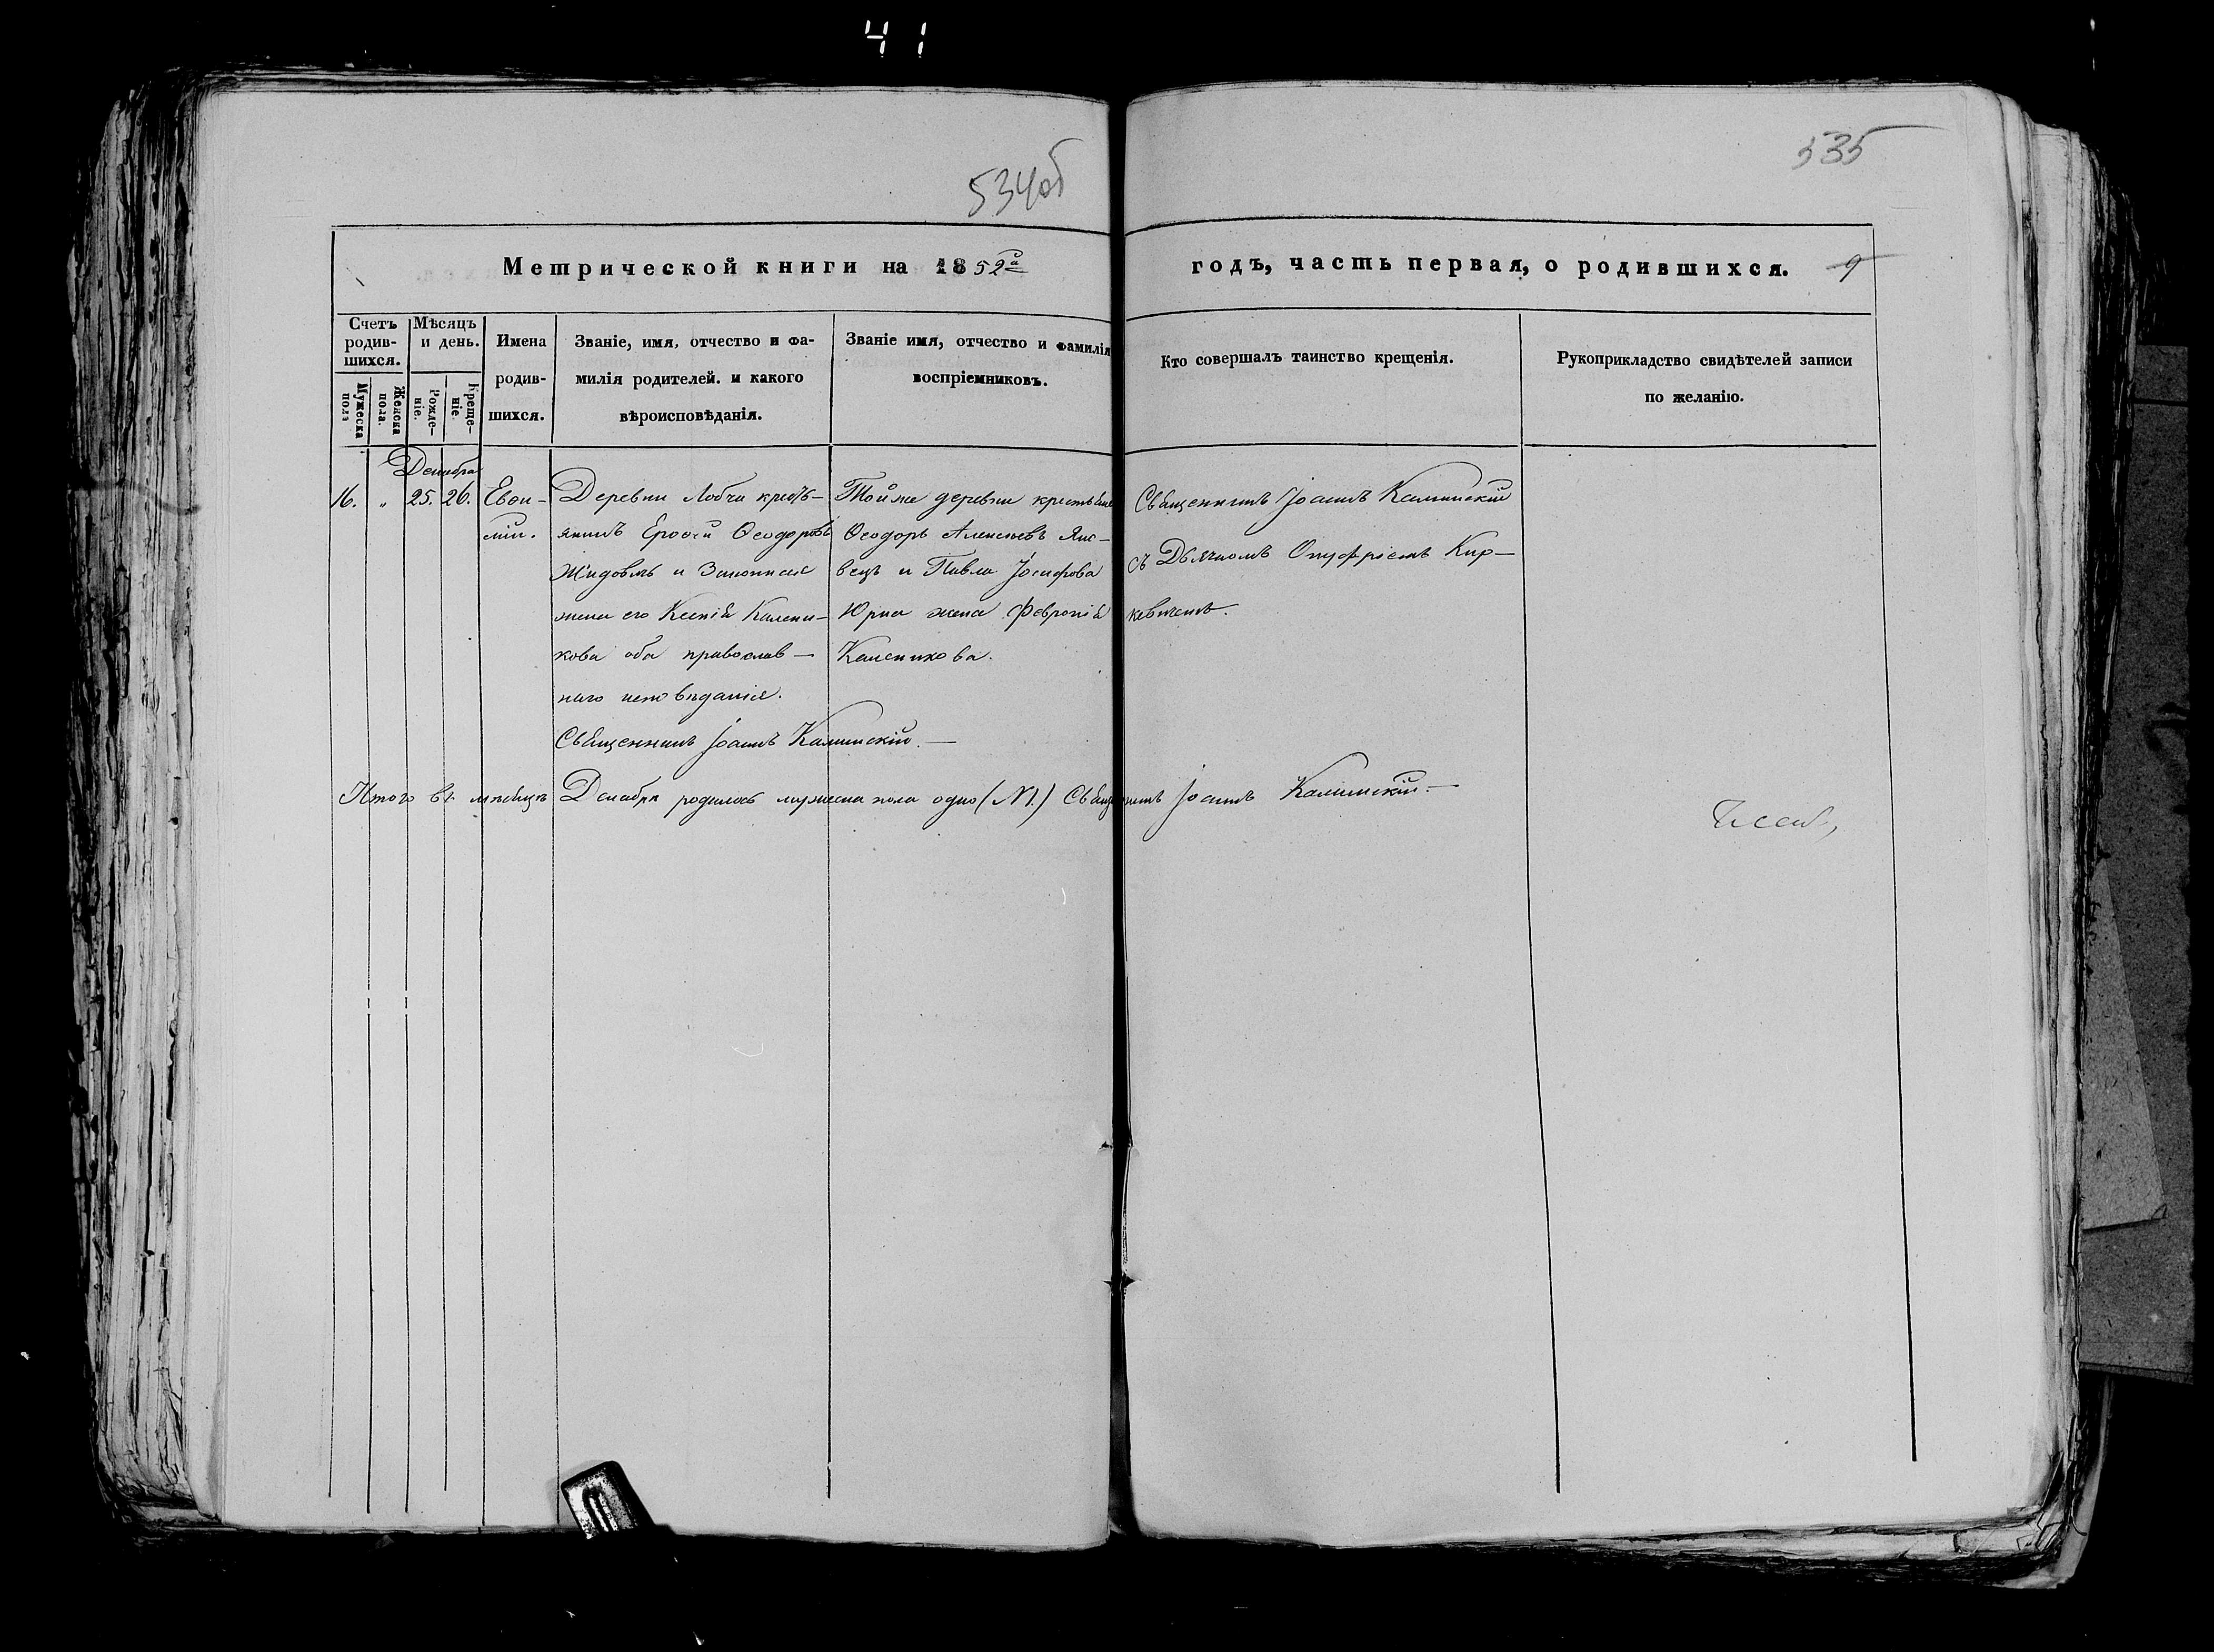 41
534об
535
Метрической книги на 1852й годъ, часть первая, о родившихся. 9
Счетъ родив-шихся.
Мѣсяцъ и день.
Имена родив-шихся.
Званіе, имя, отчество и фа-
милія родителей. и какого
вѣроисповѣданія.
Званіе имя, отчество и фамилія
воспріемниковъ.
Кто совершалъ таинство крещенія.
Рукоприкладство свидѣтелей записи
по желанію.
Мужеска пола
Женска пола.
Рожде-ніе.
Креще-ніе
Декабря
16. „ 25. 26.
Евѳи-
мій.
Деревни Лобчи кресть-
янинъ Ероѳей Ѳеодоровъ
Жидовъ и Законная
жена его Ксенія Калени-
кова оба православ-
наго исповѣданія.
Священникъ Іоаннъ Калинскій.
Той же деревни крестьяне
Ѳеодоръ Алексѣевъ
вецъ и Павла Іосифова
Юрка жена Февронія
Каленикова.
Священникъ Іоаннъ Калинскій
съ Дьячкомъ Онуфріемъ Кир-
кевичемъ.
Итого въ мѣсяцѣ Декабрѣ родилось мужеска пола одно (№1.) Священникъ Іоаннъ Калинскій.